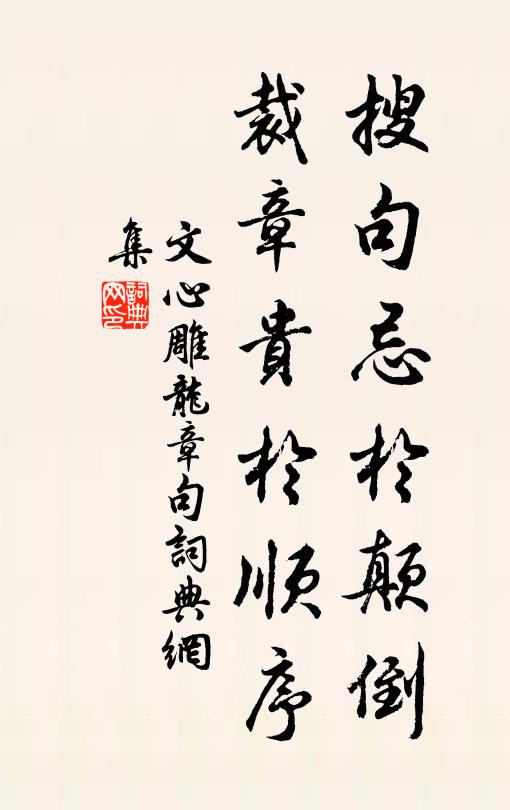 搜句忌於颠倒
裁章貴於順序
文心雕龍章句詞典網
集
詞典
网印